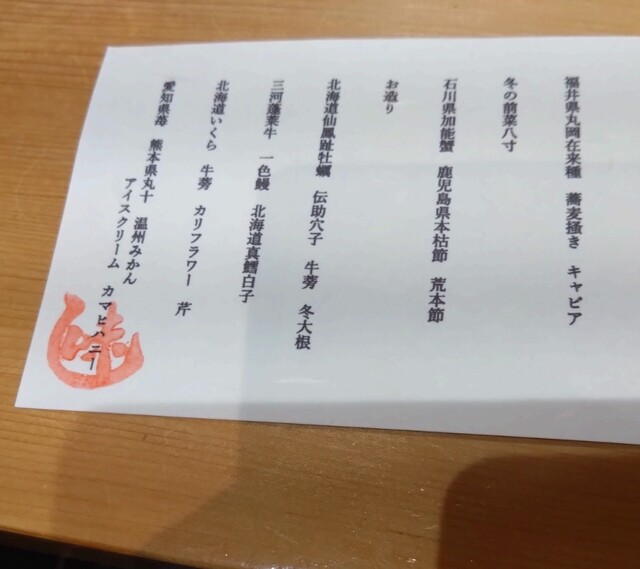 福井県丸岡在来種　蕎麦掻き　キャビア
冬の前菜八寸
石川県加能蟹　鹿児島県本枯節　荒本節
お造り
北海道仙鳳趾牡蠣　伝助穴子　牛蒡　冬大根
三河蓬莱牛　一色鰻　北海道真鱈白子
北海道いくら　牛蒡　カリフラワー　芹
愛知県苺　熊本県丸十　温州みかん
アイスクリーム　カマヒハニー
味